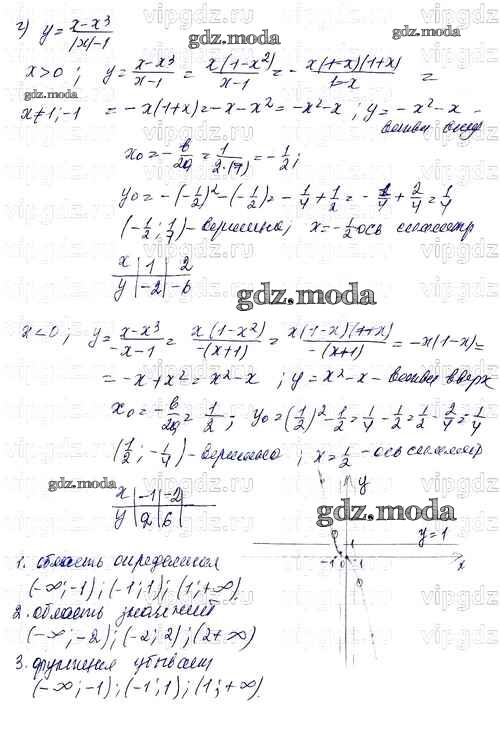 г) y = x-x³ / |x|-1
x>0 ; y = x-x³ / x-1 = x(1-x²) / x-1 = - x(1-x)(1+x) / 1-x =
x≠1;-1 = -x(1+x) = -x-x² = -x²-x ; y = -x²-x -
x₀ = -в/2a = 1/2·(-1) = -1/2 ;
y₀ = -(-1/2)² -(-1/2) = -1/4 + 1/2 = -1/4 + 2/4 = 1/4
(-1/2 ; 1/4) - вершина; x = -1/2 ось симметр
x | 1 | 2
y | -2 | -6
gdz.moda
x<0 ; y = x-x³ / -x-1 = x(1-x²) / -(x+1) = x(1-x)(1+x) / -(x+1) = -x(1-x) =
= -x+x² = x²-x ; y = x²-x - ветви вверх
x₀ = -в/2a = 1/2 ; y₀ = (1/2)² - 1/2 = 1/4 - 1/2 = 1/4 - 2/4 = 1/4
(1/2 ; -1/4) - вершина ; x = 1/2 - ось симметр
x | -1 | -2
y | 2 | 6
y
y=1
-1 0 1
x
1. область определения
(-∞;-1) ; (-1;1) ; (1;+∞)
2. область значений
(-∞;-2) ; (-2;2) ; (2+∞)
3. функция убывает
(-∞;-1) ; (-1;1) ; (1;+∞).